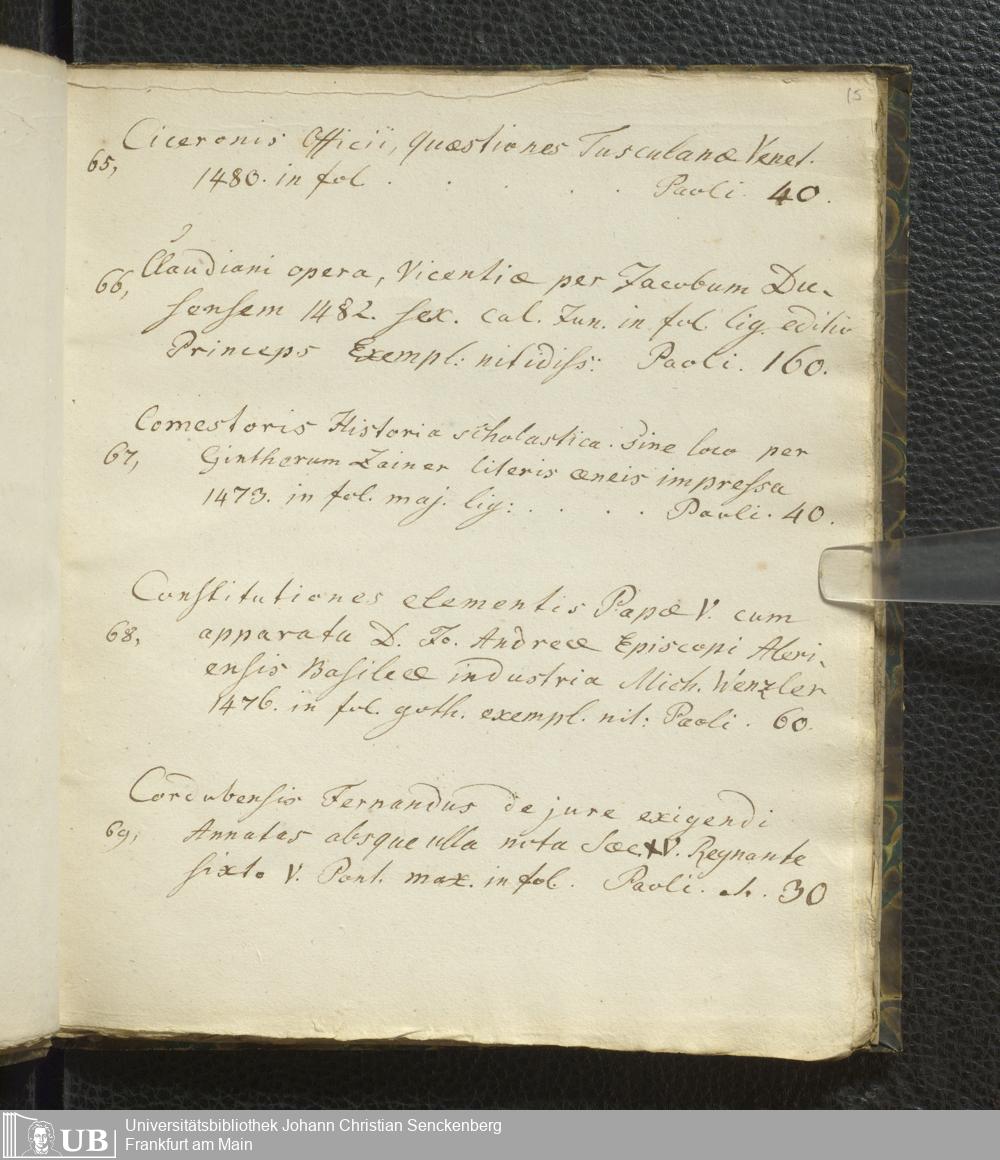 15
Ciceronis Officii, Quæstiones Tusculanæ Venet.
65,
1480. in fol . . . . . Paoli. 40.
66,
Claudiani opera, Vicentiæ per Jacobum Du-
sensem 1482. sex. Cal. Jun. in fol. lig. editio
Princeps Exempl: nitidiss: Paoli. 160.
Comestoris Historia scholastica. Sine loco per
67,
Gintherum Zainer literis æneis impressa
1473. in fol. maj. lig: . . . . Paoli. 40.
Constitutiones elementis Papæ V. cum
68,
apparatu D. Jo. Andreæ Episcopi Aleri-
ensis Basileæ industria Mich. Wenzler
1476. in fol. goth. exempl. nit: Paoli. 60.
Cordubensis Fernandus de jure exigendi
69,
Annatas absque ulla nota Sæc. XV. Regnante
sixto V. Pont. max. in fol. Paoli. 30
UB
Universitätsbibliothek Johann Christian Senckenberg
Frankfurt am Main